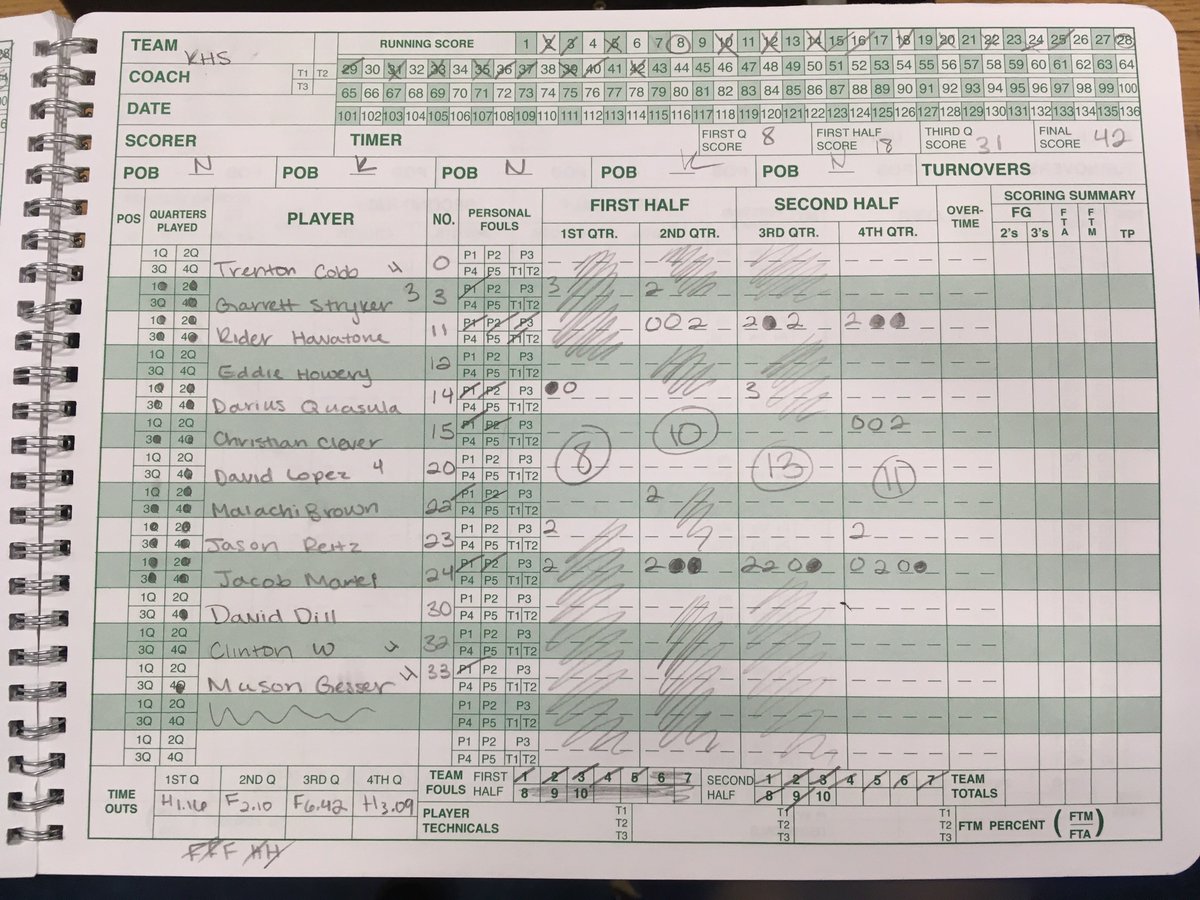 TEAM KHS RUNNING SCORE 1 2 3 4 5 6 7 8 9 10 11 12 13 14 15 16 17 18 19 20 21 22 23 24 25 26 27 28
29 30 31 32 33 34 35 36 37 38 39 40 41 42 43 44 45 46 47 48 49 50 51 52 53 54 55 56 57 58 59 60 61 62 63 64
COACH T1 T2 T3
65 66 67 68 69 70 71 72 73 74 75 76 77 78 79 80 81 82 83 84 85 86 87 88 89 90 91 92 93 94 95 96 97 98 99 100
DATE 101 102 103 104 105 106 107 108 109 110 111 112 113 114 115 116 117 118 119 120 121 122 123 124 125 126 127 128 129 130 131 132 133 134 135 136
SCORER TIMER FIRST Q SCORE 8 FIRST HALF SCORE 18 THIRD Q SCORE 31 FINAL SCORE 42
POB N POB K POB N POB K POB N TURNOVERS
POS QUARTERS PLAYED PLAYER NO. PERSONAL FOULS FIRST HALF SECOND HALF OVER-TIME SCORING SUMMARY
1ST QTR. 2ND QTR. 3RD QTR. 4TH QTR. FG 2's 3's FTA FTM TP
1Q 2Q P1 P2 P3
3Q 4Q Trenton Cobb 4 0 P4 P5 T1 T2
1Q 2Q P1 P2 P3 3 2
3Q 4Q Garrett Stryker 3 3 P4 P5 T1 T2
1Q 2Q P1 P2 P3 002 2 2 2
3Q 4Q Rider Havatone 11 P4 P5 T1 T2
1Q 2Q P1 P2 P3
3Q 4Q Eddie Howery 12 P4 P5 T1 T2
1Q 2Q P1 P2 P3 0 3
3Q 4Q Darius Quasula 14 P4 P5 T1 T2
1Q 2Q P1 P2 P3 002
3Q 4Q Christian Clever 15 P4 P5 T1 T2
8 10 13 11
1Q 2Q P1 P2 P3
3Q 4Q David Lopez 4 20 P4 P5 T1 T2
1Q 2Q P1 P2 P3 2
3Q 4Q Malachi Brown 22 P4 P5 T1 T2
1Q 2Q P1 P2 P3 2 2
3Q 4Q Jason Reitz 23 P4 P5 T1 T2
1Q 2Q P1 P2 P3 2 2 220 020
3Q 4Q Jacob Mariel 24 P4 P5 T1 T2
1Q 2Q P1 P2 P3
3Q 4Q David Dill 30 P4 P5 T1 T2
1Q 2Q P1 P2 P3
3Q 4Q Clinton W 32 P4 P5 T1 T2
1Q 2Q P1 P2 P3
3Q 4Q Mason Gesser 33 P4 P5 T1 T2
1Q 2Q P1 P2 P3
3Q 4Q P4 P5 T1 T2
1Q 2Q P1 P2 P3
3Q 4Q P4 P5 T1 T2
TIME OUTS 1ST Q 2ND Q 3RD Q 4TH Q TEAM FOULS FIRST HALF 1 2 3 4 5 6 7 8 9 10 SECOND HALF 1 2 3 4 5 6 7 8 9 10 TEAM TOTALS
H1.16 F2.10 F6.42 H3.09 PLAYER TECHNICALS T1 T2 T3 T1 T2 T3 T1 T2 T3 FTM PERCENT (FTM FTA)
FFF HH